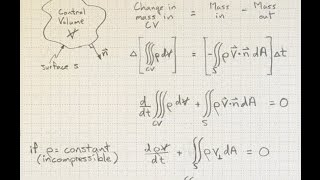 Control
Volume
V
n⃗
Surface S
Change in mass in CV = Mass in - Mass out
Δ[∭_CV ρdV] = [-∬_S ρV⃗·n⃗ dA]Δt
d/dt ∭_CV ρdV + ∬_S ρV⃗·n⃗dA = 0
if ρ = constant
(incompressible)
dρV/dt + ∬_S ρV⊥dA = 0